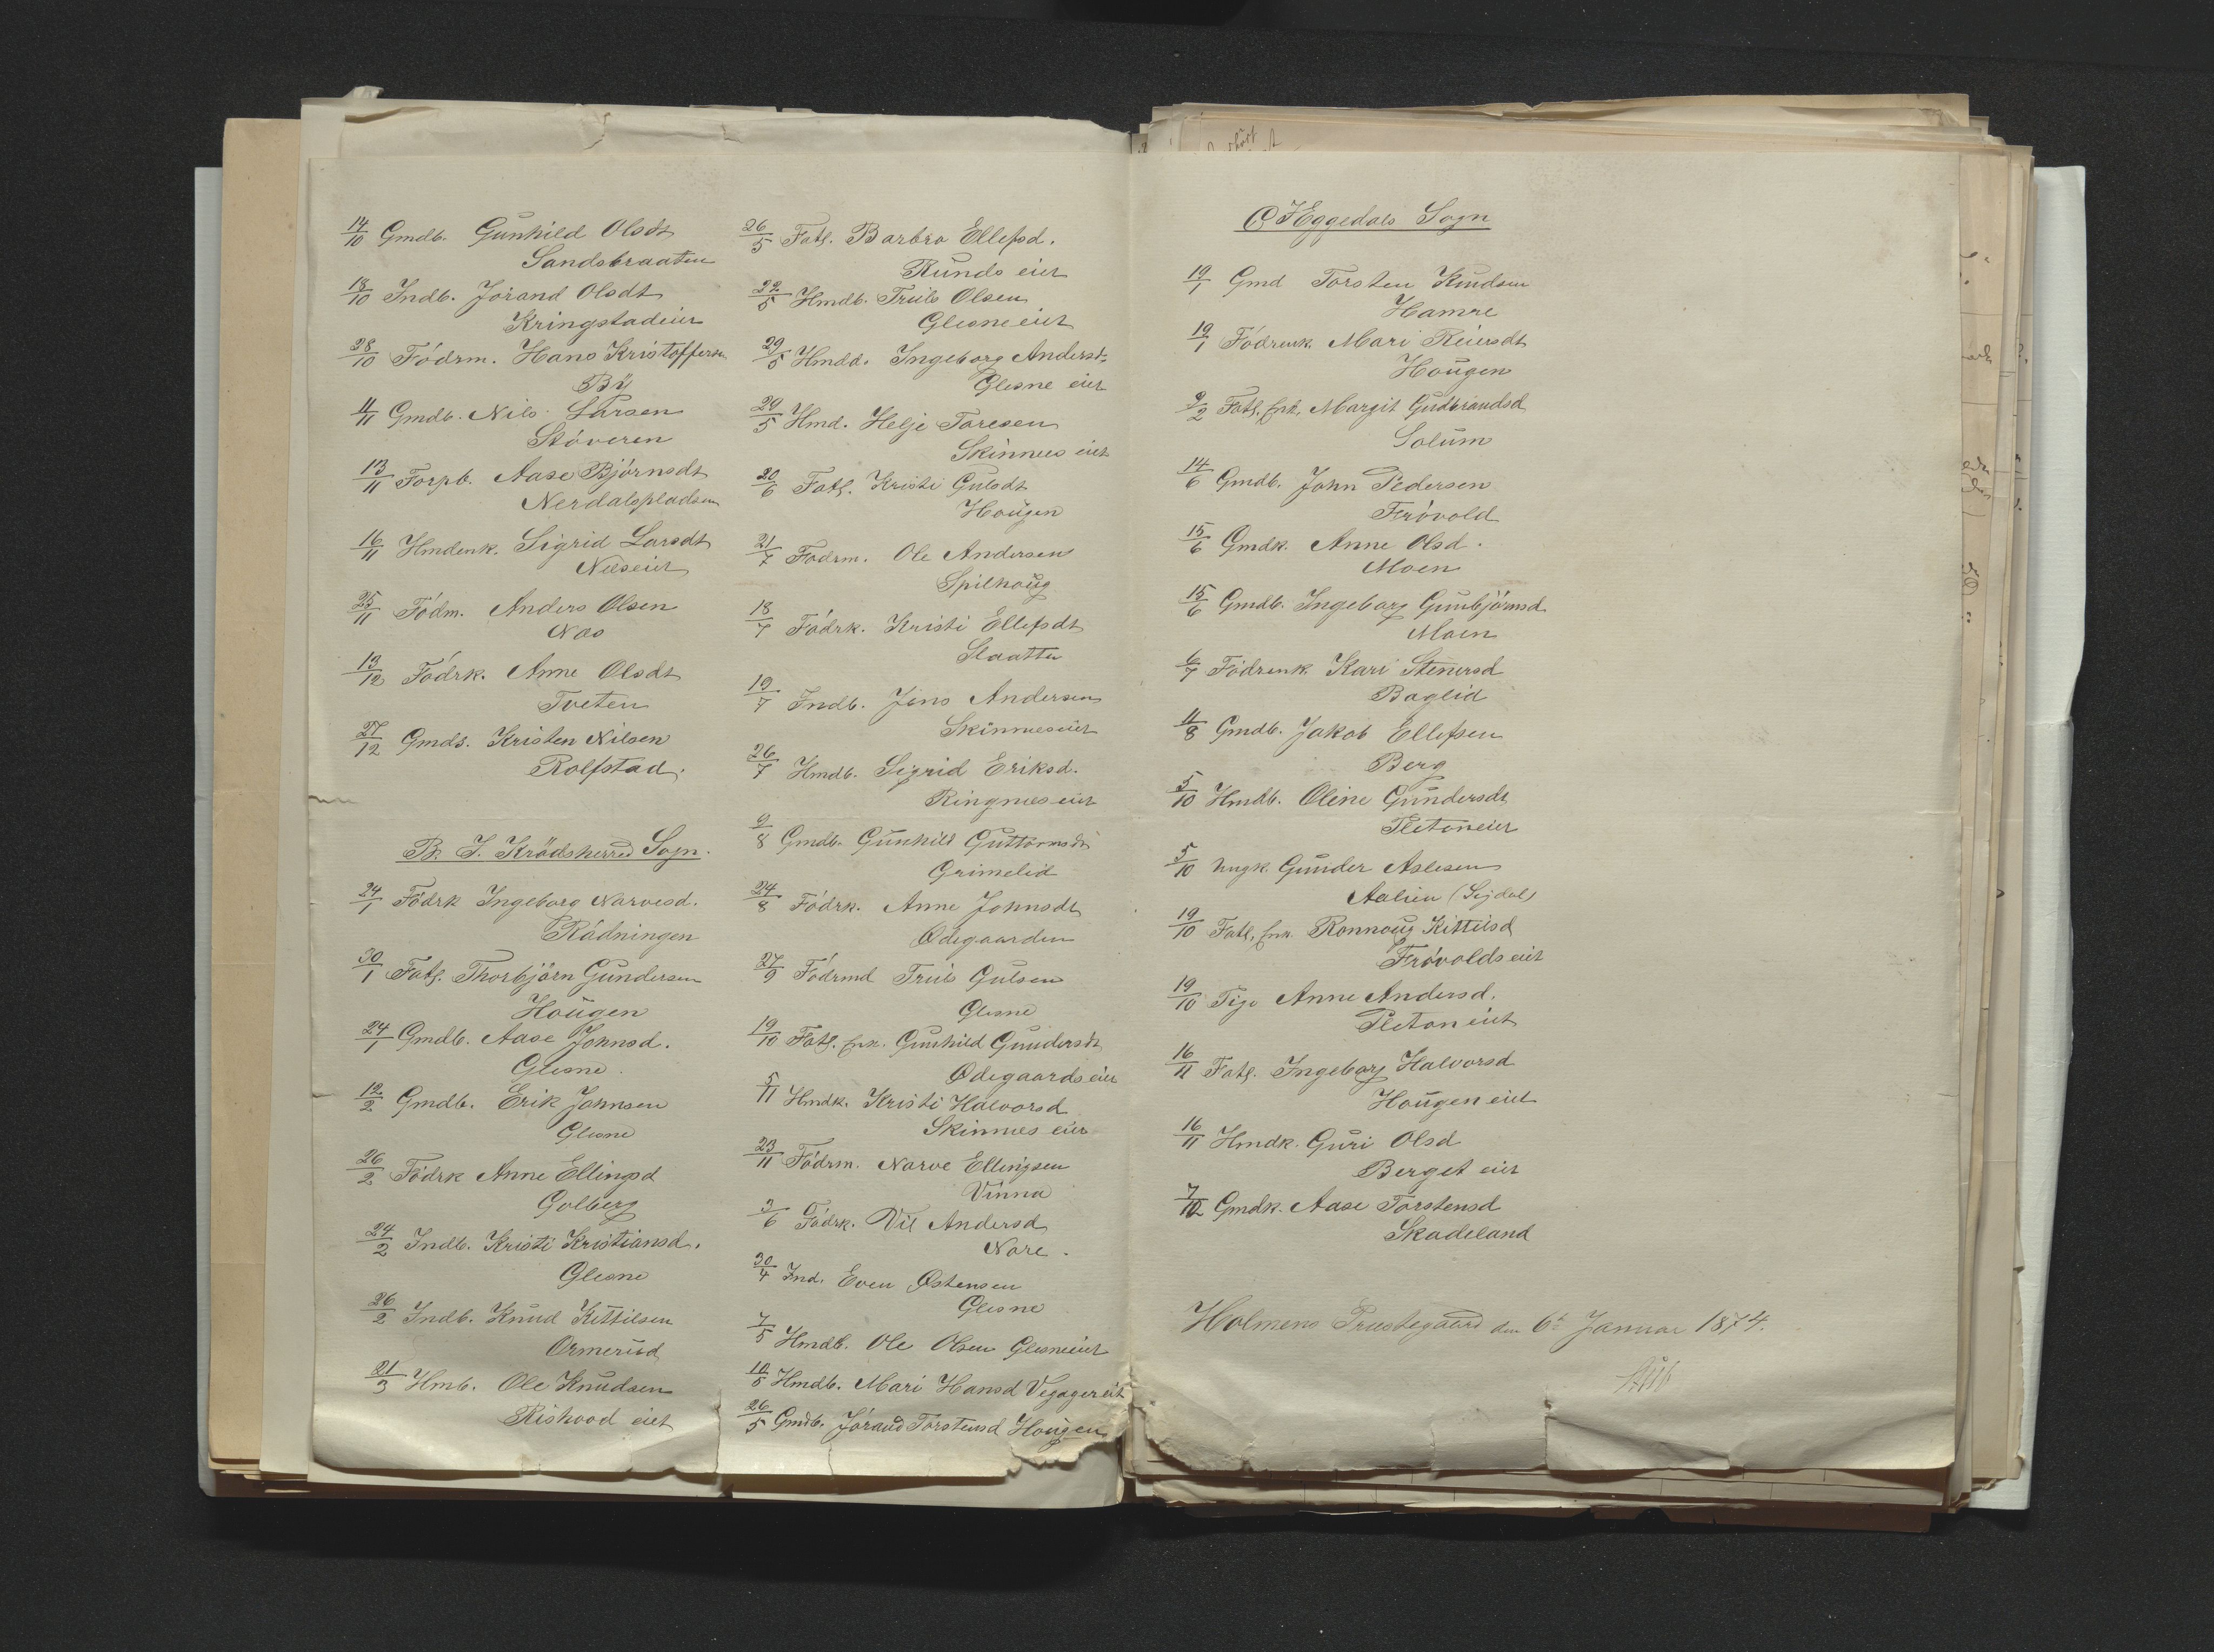 14/10 Gmdb. Gunhild Olsdt
Sandsbraaten
18/10 Indb. Jörand Olsdt
Kringstadeier
28/10 Födrm. Hans Kristoffersen
By
4/11 Gmdb. Nils Larsen
Stöveren
13/11 Forpb. Aase Björnsdt
Nerdalspladsen
16/11 Hmdenk. Sigrid Larsdt
Næseiet
25/11 Födm. Anders Olsen
Nas
13/12 Födrk. Anne Olsdt
Tveten
27/12 Gmds. Kristen Nilsen
Rolfstad.
B. I. Krödsherred Sogn.
24/1 Födrk Ingeborg Narvesd.
Rådningen
30/1 Fatg. Thorbjörn Gundersen
Hougen
24/1 Gmdb. Aase Johnsd.
Glesne.
12/2 Gmdb. Erik Johnsen
Glesne
26/2 Födrk Anne Ellingsd
Golberg
24/2 Indb. Kristi Kristiansd.
Glesne
26/2 Indb. Knud Kittilsen
Ormerud
21/3 Hmb. Ole Knudsen
Rishovd eiet
26/5 Fatg. Barbro Ellefsd.
Runds eier
22/5 Hmdb. Truls Olsen
Glesneeiet
29/5 Hmdd. Ingeborg Andersdt
Glesne eiet
29/5 Hmd. Helje Toresen
Skinnes eiet
20/6 Fatg. Kristi Gulsdt
Hougen
21/7 Fodrm. Ole Andersen
Spilhoug
18/7 Födrk. Kristi Ellefsdt
Slaatten
19/7 Indb. Jens Andersen
Skinneseiet
26/7 Hmdb. Sigrid Eriksd.
Ringneseiet
9/8 Gmdb. Gunhild Guttormsdt
Grimelid
24/8 Födrk. Anne Johnsdt
Ødegaarden
27/9 Födrmd Truls Gulsen
Glesne
19/10 Fatg. Enk. Gunhild Gundersdt
Ødegaardseier
5/11 Hmdk. Kristi Halvorsd
Skinnes eiet
23/11 Födrm. Narve Ellingsen
Vinna
3/6 Födrk. Vil Andersd
Nore.
30/4 Ind. Even Østensen
Glesne
7/5 Hmdb. Ole Olsen Glesneeiet
10/5 Hmdb. Mari Hansd Vegagereiet
26/5 Gmdb. Jörand Torstensd Hougen
C. I Eggedals Sogn
19/1 Gmd Torsten Knudsen
Hamre
19/1 Födrenk. Mari Reiersdt
Hougen
9/2 Fatg. Enk. Margit Gudbrandsd
Solum
14/6 Gmdb. John Pedersen
Frövold
15/6 Gmdk. Anne Olsd.
Moen
15/6 Gmdb. Ingeborg Gunbjörnsd
Moen
6/7 Födrenk. Kari Stenersd
Baglid
4/8 Gmdb. Jakob Ellefsen
Berg
5/10 Hmdb. Oline Gundersdt
Pletoneier
5/10 Ungk. Gunder Aslesen
Aalien (Sigdal)
19/10 Fatg. Enk. Ronnoug Kittilsd
Frövoldseiet
19/10 Pige Anne Andersd.
Pleton eiet
16/11 Fatg. Ingeborg Halvorsd
Hougen eiet
16/11 Hmdk. Guri Olsd
Berget eiet
7/12 Gmdk. Aase Torstensd
Skadeland
Holmens Præstegaard den 6te Januar 1874.